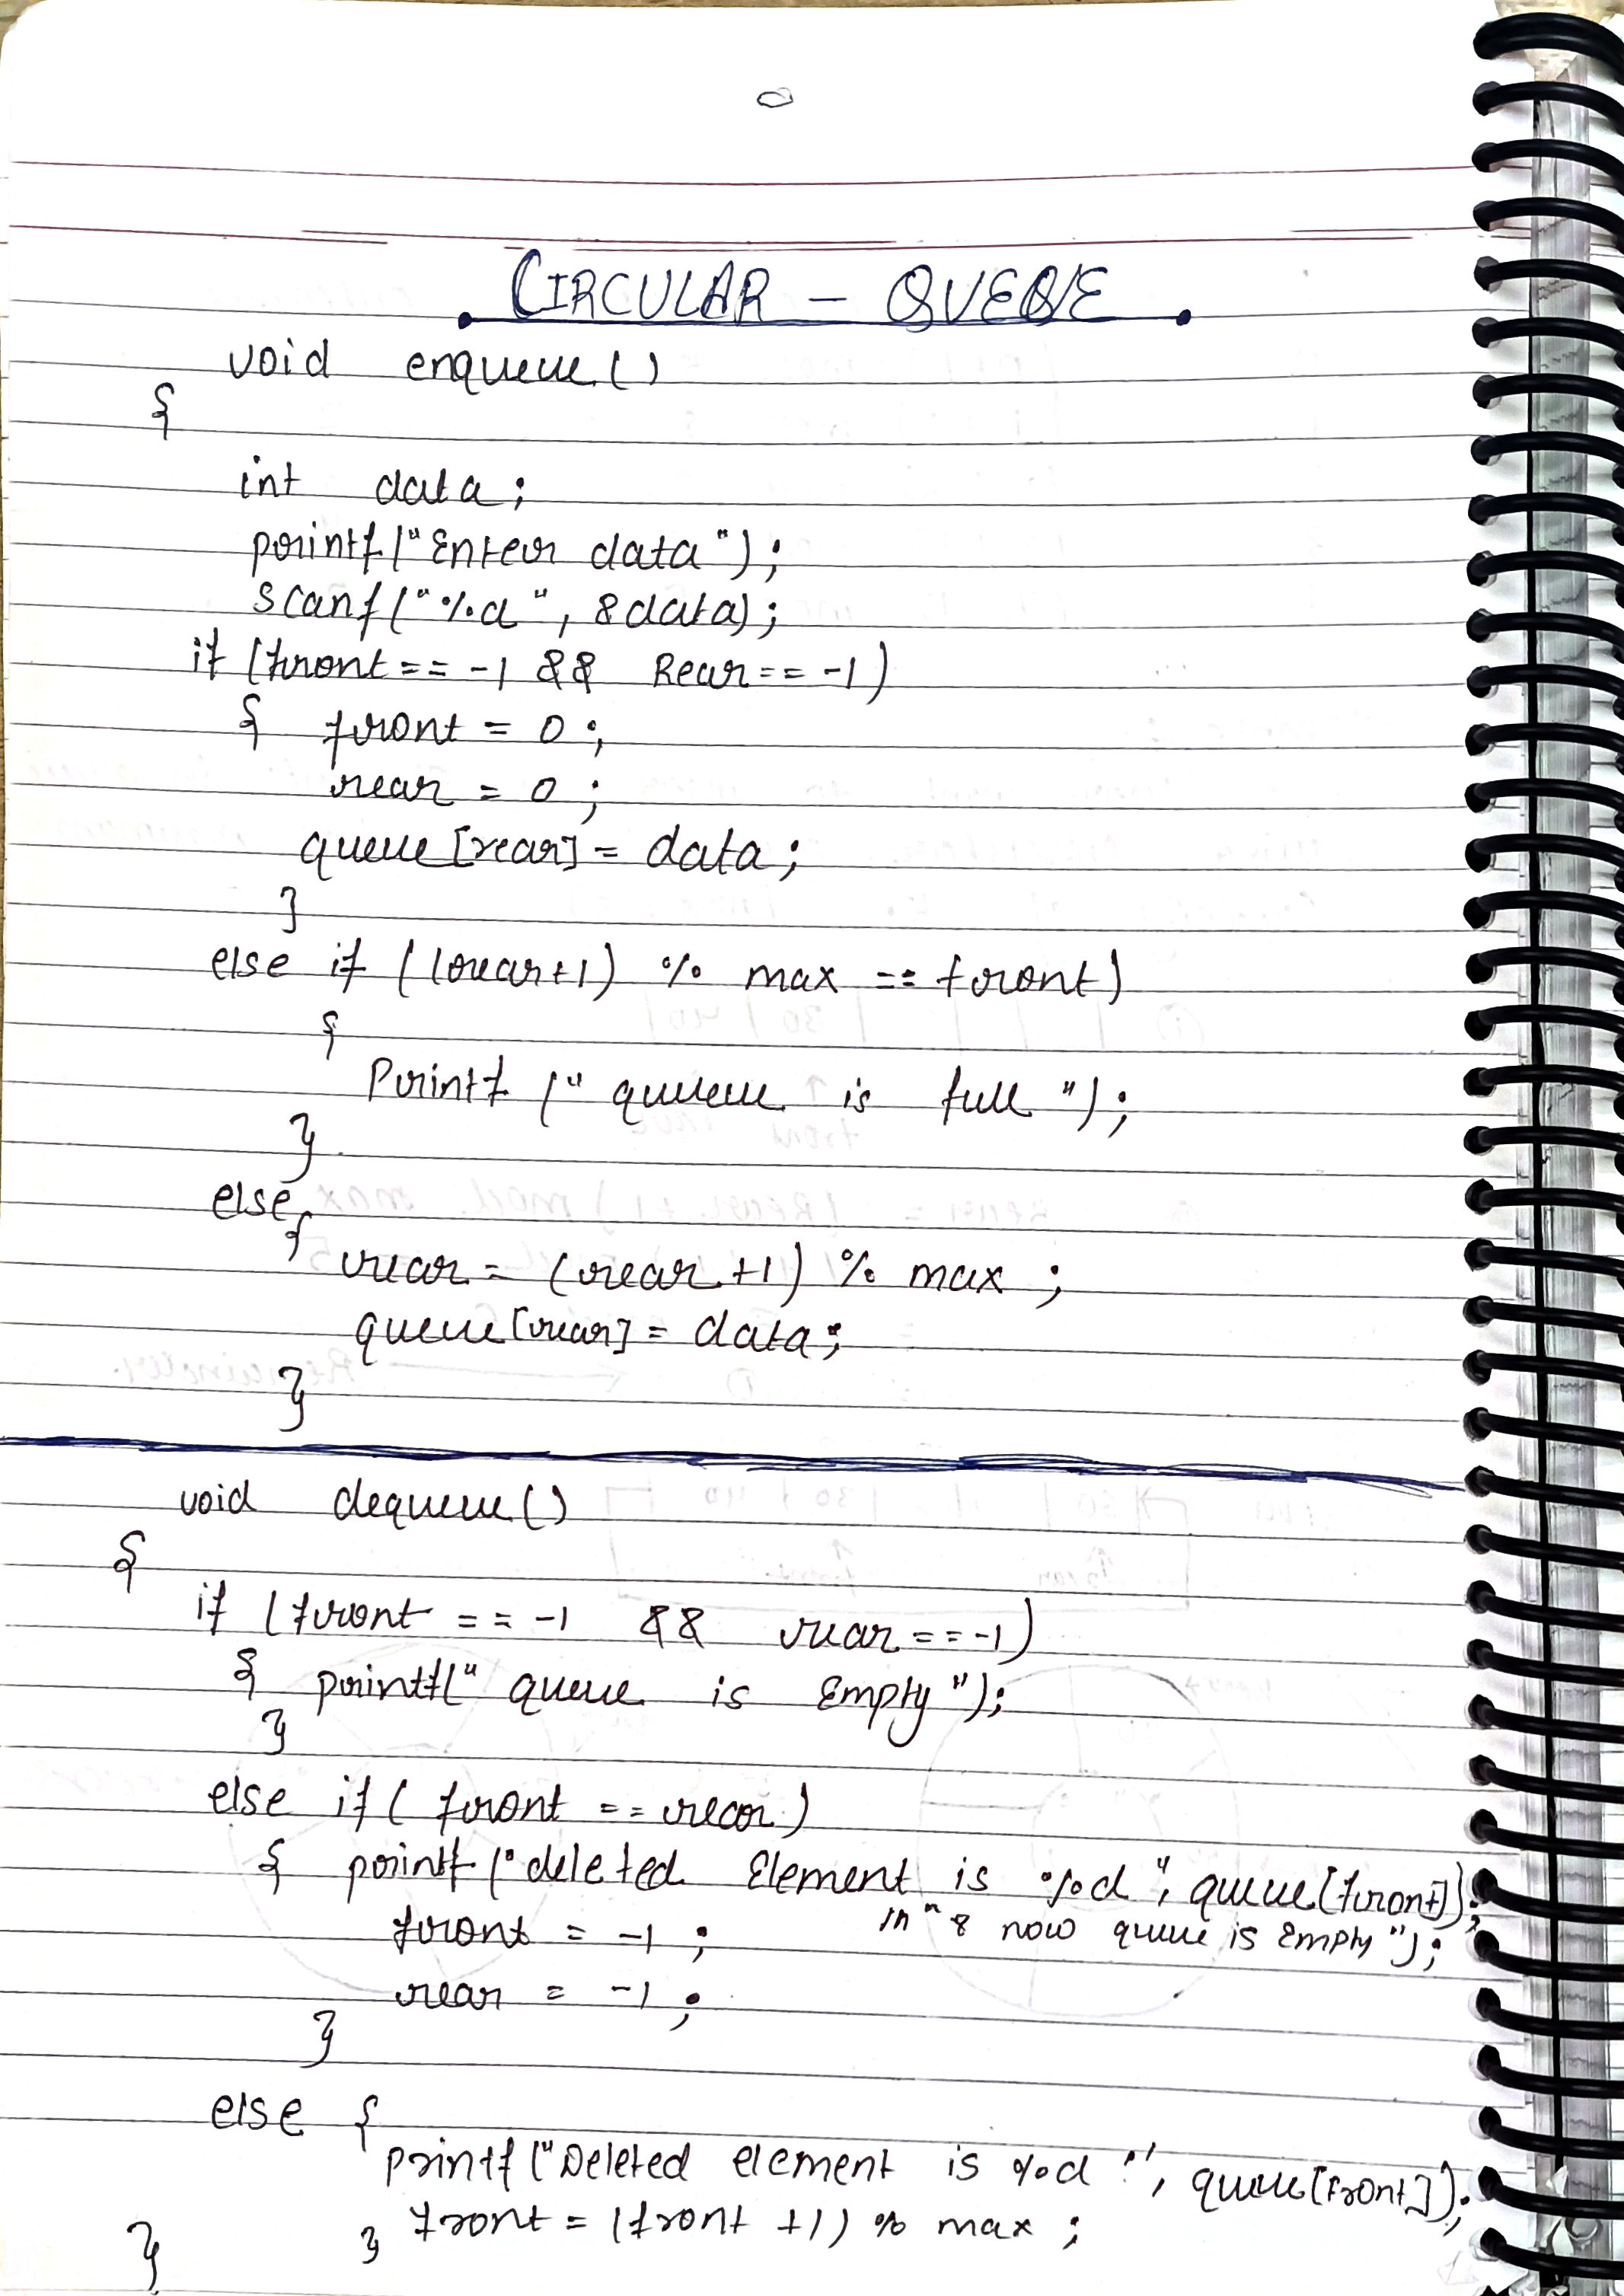 CIRCULAR - QUEUE
void enqueue()
{
int data;
printf("Enter data");
scanf("%d", &data);
if (front == -1 && Rear == -1)
{ front = 0;
rear = 0;
queue[rear] = data;
}
else if ((rear+1) % max == front)
{
Printf (" queue is full ");
}
else
{
rear = (rear +1) % max ;
queue[rear] = data;
}
void dequeue()
{
if (front == -1 && rear == -1)
{ printf(" queue is Empty ");
}
else if ( front == rear )
{ printf ("deleted Element is %d", queue[front]);
\n" & now queue is Empty ");
front = -1 ;
rear = -1 ;
}
else {
printf ("Deleted element is %d ", queue[front]);
front = (front +1) % max ;
} }